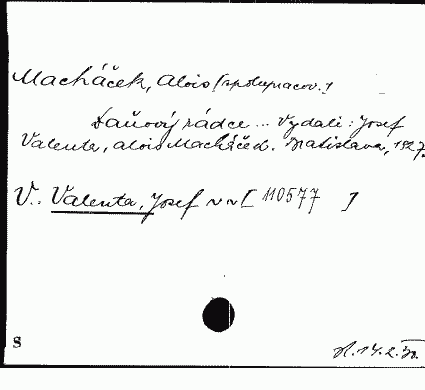 Macháček, Alois [spolupracov.]
Daňový rádce ... Vydali: Josef
Valenta, Alois Macháček. Bratislava, 1927.
V.. Valenta, Josef [110577 ]
S
14.2.